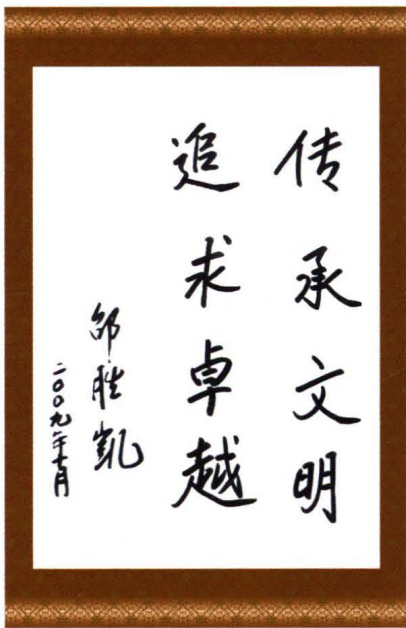 传承文明
追求卓越
邰胜凯
二〇〇九年十月